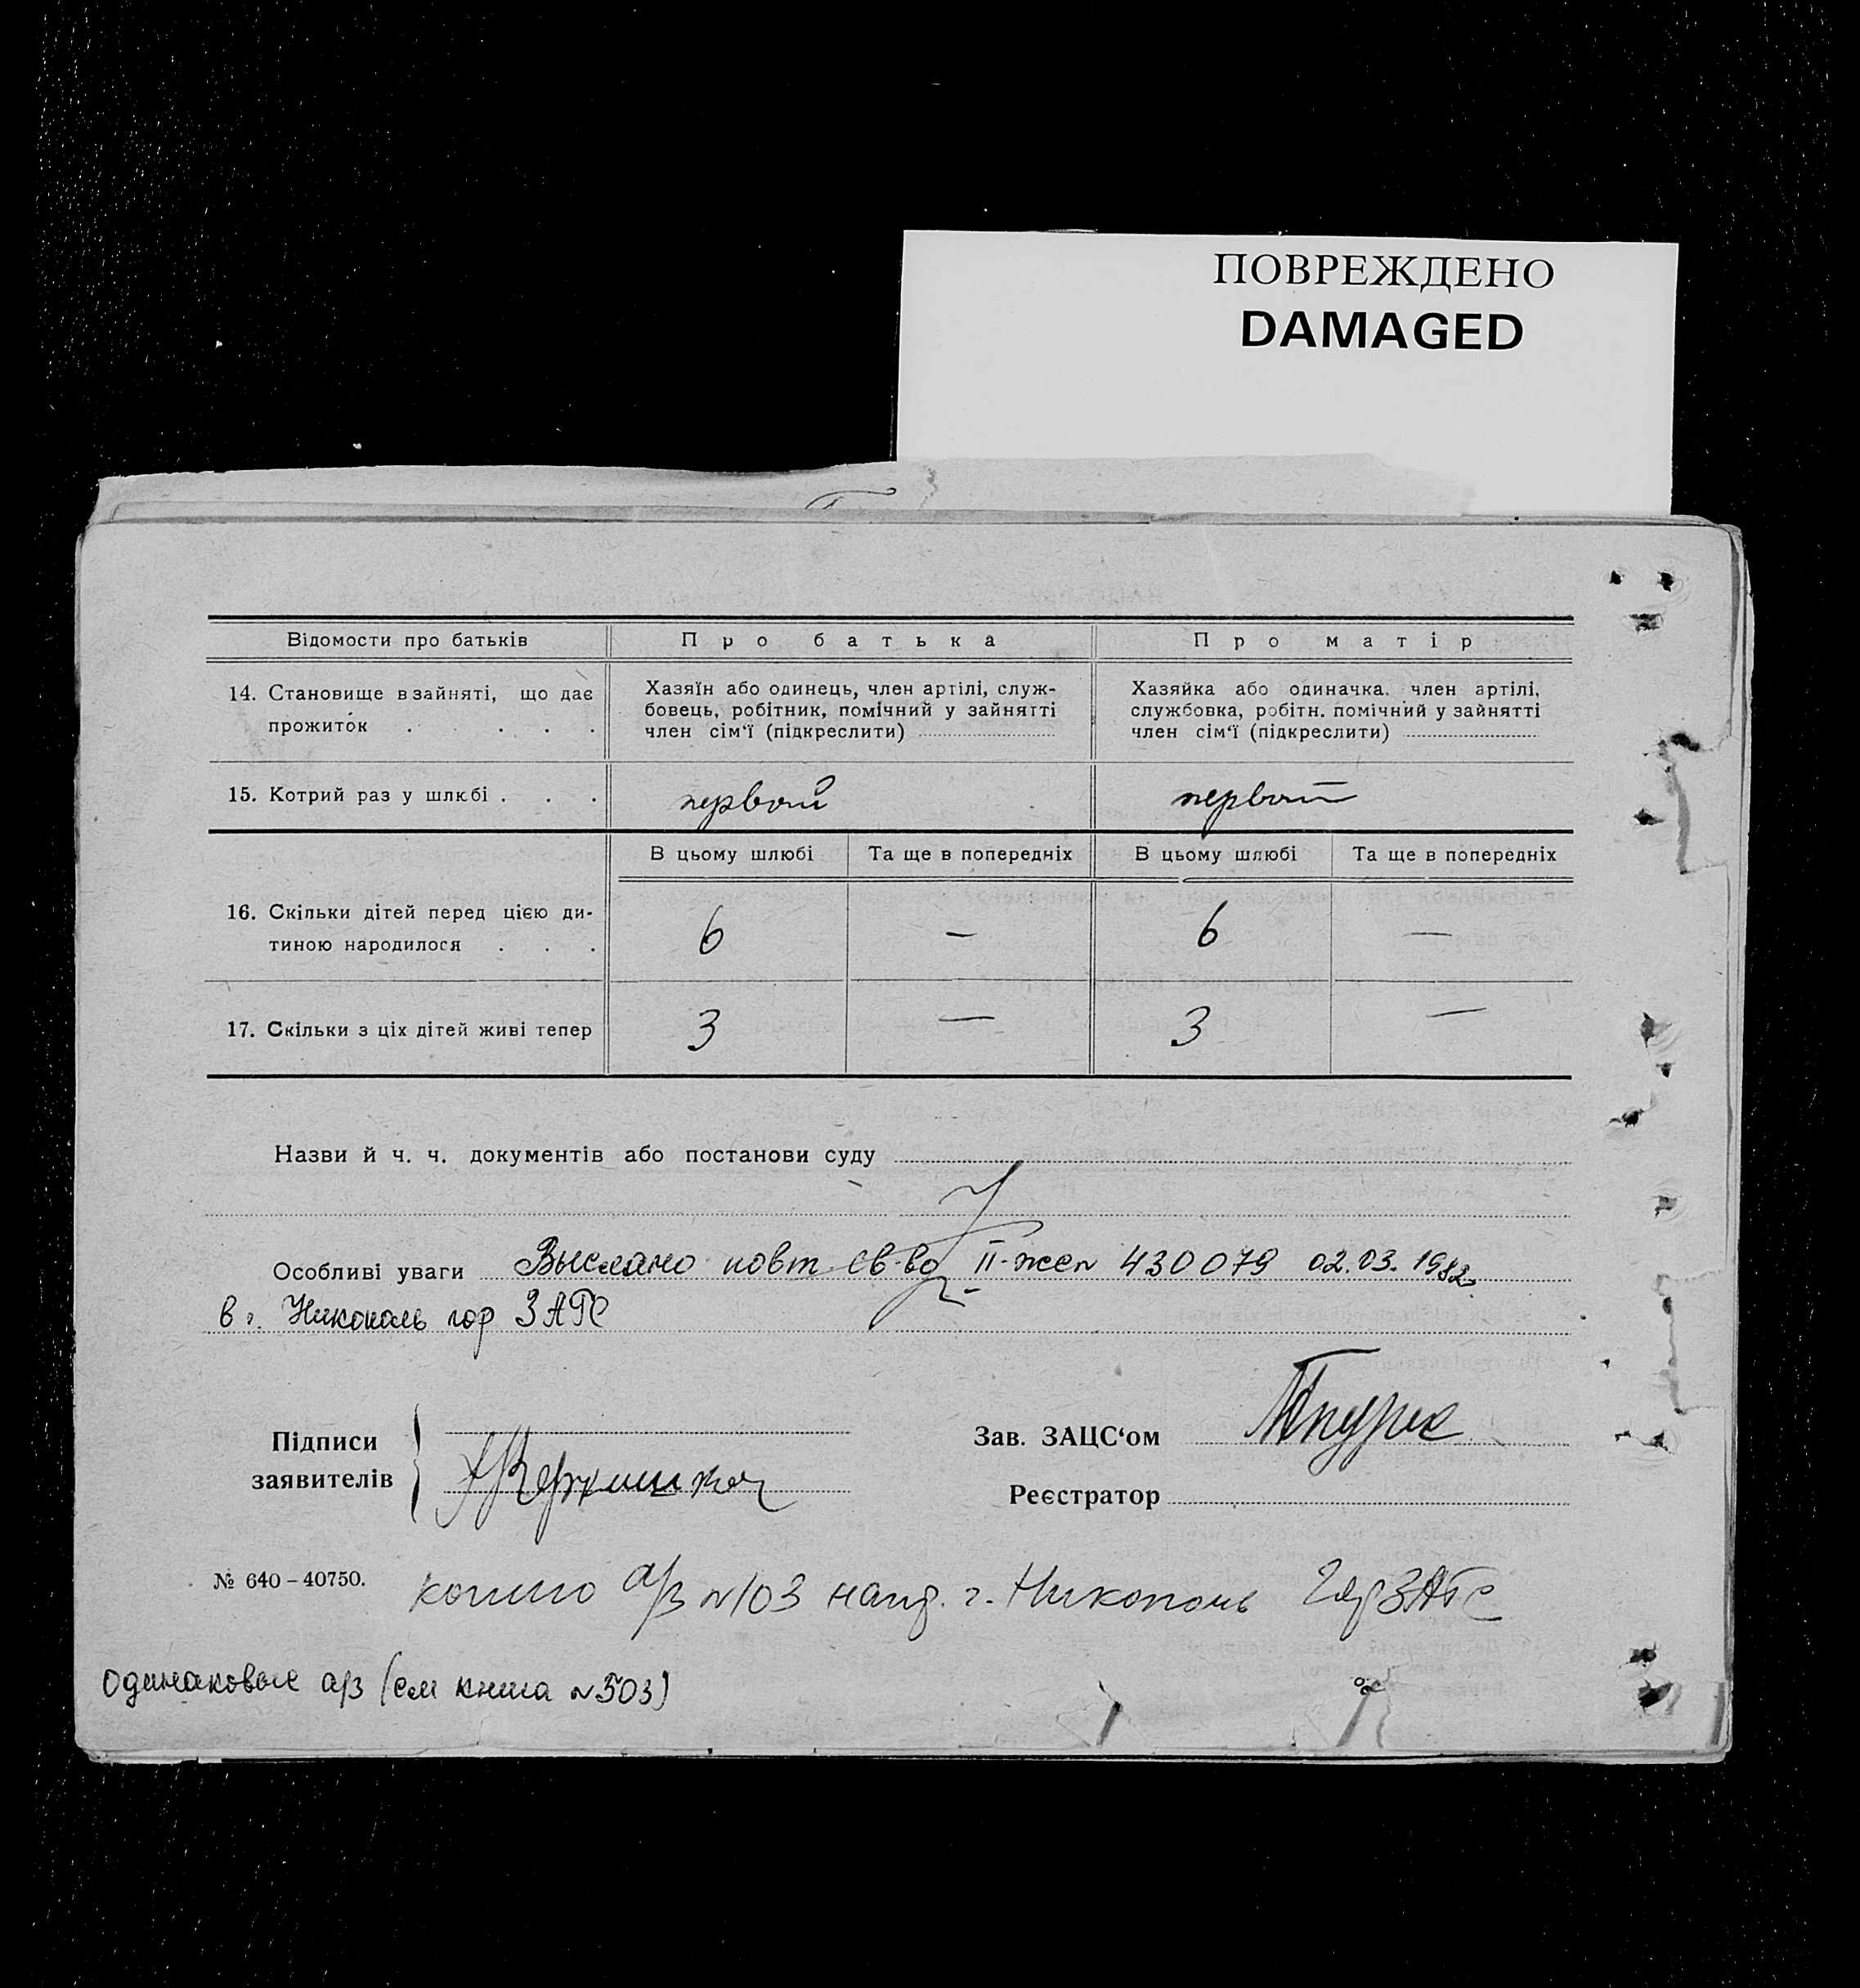 ПОВРЕЖДЕНО
DAMAGED
Відомости про батьків
Про батька
Про матір
14. Становище в зайняті, що дає прожиток . . . .
Хазяїн або одинець, член артілі, служ-
бовець, робітник, помічний у зайнятті
член сім'ї (підкреслити)
Хазяйка або одиначка, член артілі,
службовка, робітн. помічний у зайнятті
член сім'ї (підкреслити)
15. Котрий раз у шлюбі . . .
первый
первый
В цьому шлюбі
Та ще в попередніх
В цьому шлюбі
Та ще в попередніх
16. Скільки дітей перед цією ди-
тиною народилося . . .
6
—
6
—
17. Скільки з ціх дітей живі тепер
3
—
3
—
Назви й ч. ч. документів або постанови суду
Особливі уваги Выслано повт св-во II-жел 430079 02.03.1982
в г. Никополь гор ЗАГС
Підписи
заявителів
Зав. ЗАЦС'ом
Реєстратор
№ 640–40750.
копию а/з №103 напр. г. Никополь ГорЗАГС
одинаковые а/з (см книга №503)